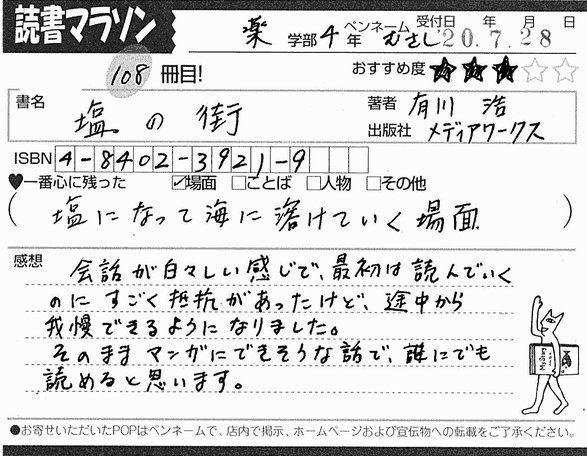 読書マラソン
薬 学部 4 年 ペンネーム むさし 受付日 年 月 日
'20.7.28
108 冊目! おすすめ度 ★★★☆☆
書名 塩の街 著者 有川 浩
出版社 メディアワークス
ISBN 4-8402-3921-9
♥一番心に残った ☑場面 □ことば □人物 □その他
(塩になって海に溶けていく場面)
感想
会話が白々しい感じで、最初は読んでいく
のにすごく抵抗があったけど、途中から
我慢できるようになりました。
そのままマンガにできそうな話で、誰にでも
読めると思います。
●お寄せいただいたPOPはペンネームで、店内で掲示、ホームページおよび宣伝物への転載をご了承ください。